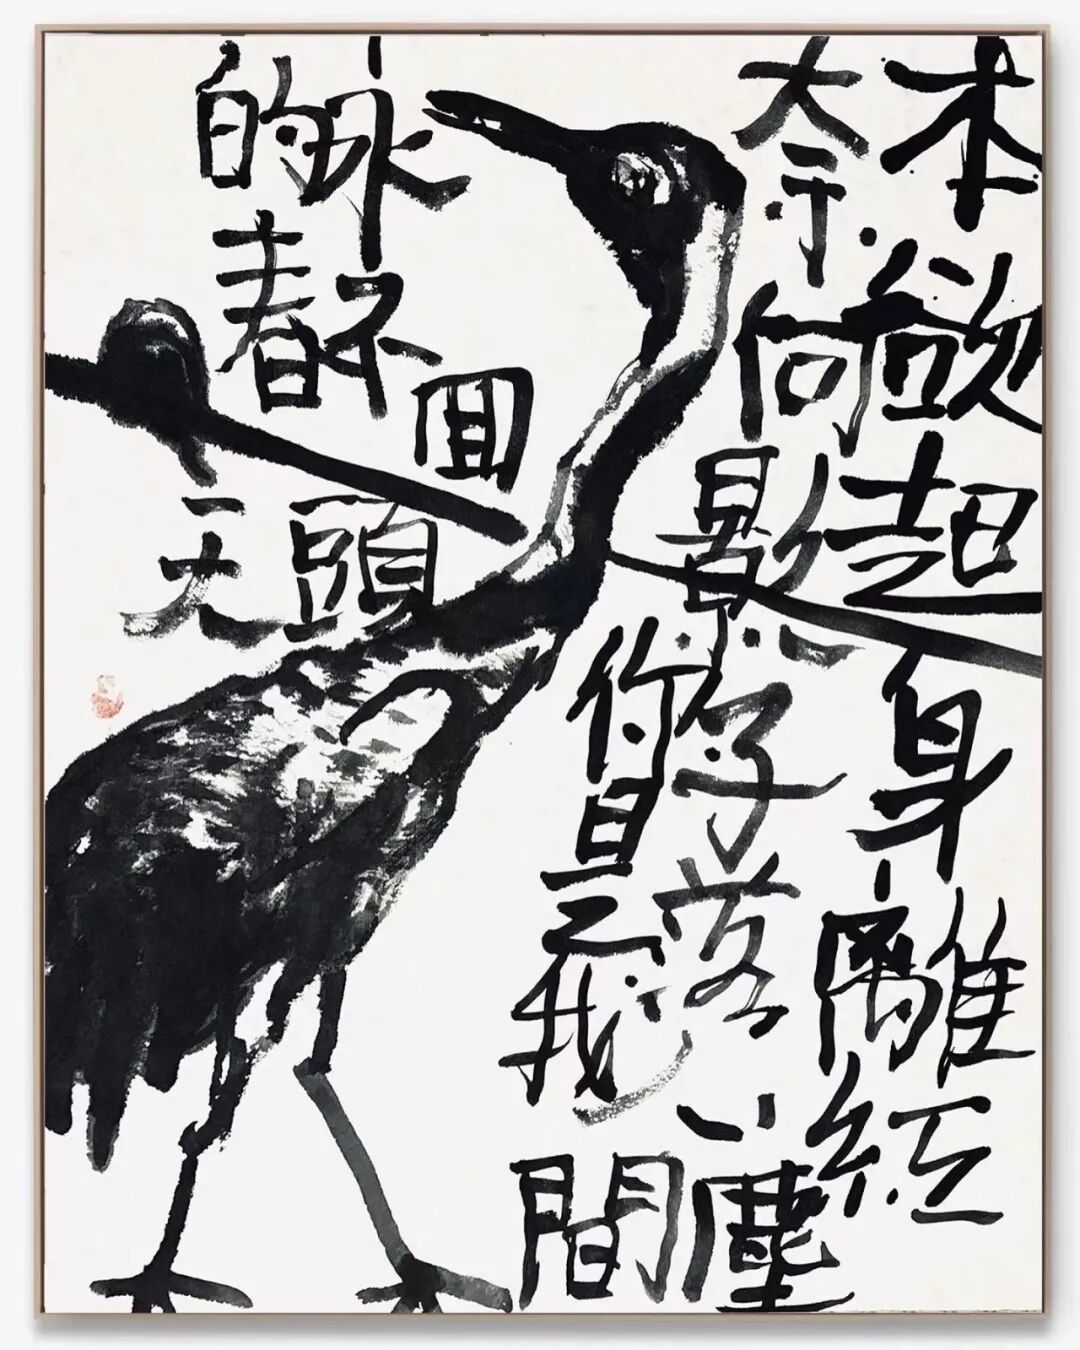 本欲起身離紅塵
奈何影子落人間
你是我
永不回頭
的春天